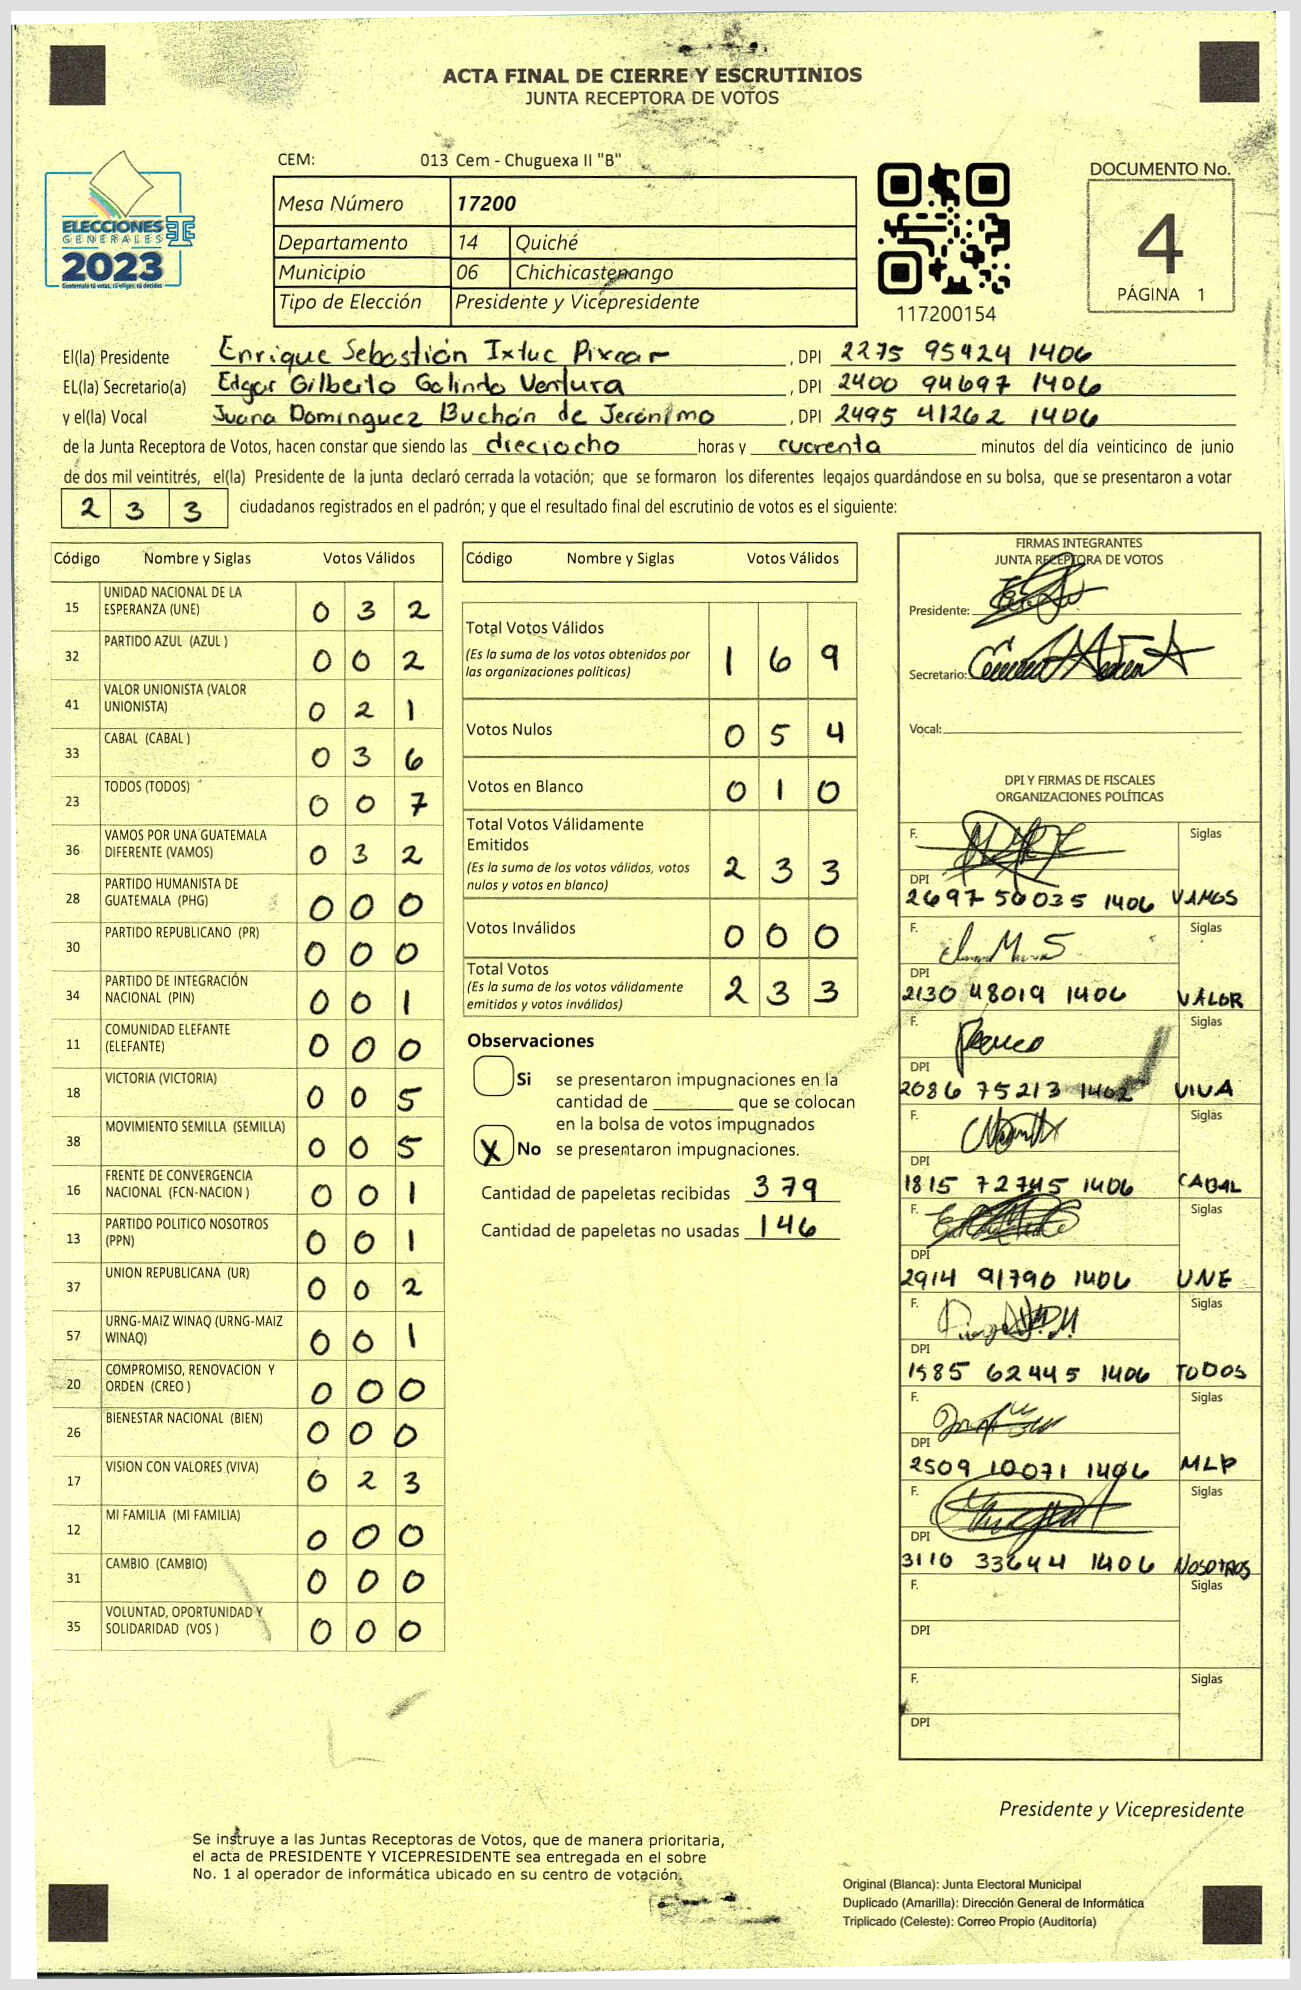 ACTA FINAL DE CIERRE Y ESCRUTINIOS
JUNTA RECEPTORA DE VOTOS
CEM: 013 Cem - Chuguexa II "B"
ELECCIONES
GENERALES
2023
Mesa Número 17200
Departamento 14 Quiché
Municipio 06 Chichicastenango
Tipo de Elección Presidente y Vicepresidente
117200154
DOCUMENTO No.
4
PÁGINA 1
El(la) Presidente Enrique Sebastián Ixtuc Pixcar, DPI 2275 95424 1406
EL(la) Secretario(a) Edgar Gilberto Galindo Ventura, DPI 2400 94697 1406
y el(la) Vocal Juana Dominguez Buchón de Jerónimo, DPI 2495 41262 1406
de la Junta Receptora de Votos, hacen constar que siendo las dieciocho horas y cuarenta minutos del día veinticinco de junio
de dos mil veintitrés, el(la) Presidente de la junta declaró cerrada la votación; que se formaron los diferentes legajos guardándose en su bolsa, que se presentaron a votar
2 3 3 ciudadanos registrados en el padrón; y que el resultado final del escrutinio de votos es el siguiente:
Código Nombre y Siglas Votos Válidos
15 UNIDAD NACIONAL DE LA ESPERANZA (UNE) 0 3 2
32 PARTIDO AZUL (AZUL ) 0 0 2
41 VALOR UNIONISTA (VALOR UNIONISTA) 0 2 1
33 CABAL (CABAL ) 0 3 6
23 TODOS (TODOS) 0 0 7
36 VAMOS POR UNA GUATEMALA DIFERENTE (VAMOS) 0 3 2
28 PARTIDO HUMANISTA DE GUATEMALA (PHG) 0 0 0
30 PARTIDO REPUBLICANO (PR) 0 0 0
34 PARTIDO DE INTEGRACIÓN NACIONAL (PIN) 0 0 1
11 COMUNIDAD ELEFANTE (ELEFANTE) 0 0 0
18 VICTORIA (VICTORIA) 0 0 5
38 MOVIMIENTO SEMILLA (SEMILLA) 0 0 5
16 FRENTE DE CONVERGENCIA NACIONAL (FCN-NACION ) 0 0 1
13 PARTIDO POLITICO NOSOTROS (PPN) 0 0 1
37 UNION REPUBLICANA (UR) 0 0 2
57 URNG-MAIZ WINAQ (URNG-MAIZ WINAQ) 0 0 1
20 COMPROMISO, RENOVACION Y ORDEN (CREO ) 0 0 0
26 BIENESTAR NACIONAL (BIEN) 0 0 0
17 VISION CON VALORES (VIVA) 0 2 3
12 MI FAMILIA (MI FAMILIA) 0 0 0
31 CAMBIO (CAMBIO) 0 0 0
35 VOLUNTAD, OPORTUNIDAD Y SOLIDARIDAD (VOS ) 0 0 0
Código Nombre y Siglas Votos Válidos
Total Votos Válidos 1 6 9
(Es la suma de los votos obtenidos por
las organizaciones políticas)
Votos Nulos 0 5 4
Votos en Blanco 0 1 0
Total Votos Válidamente
Emitidos 2 3 3
(Es la suma de los votos válidos, votos
nulos y votos en blanco)
Votos Inválidos 0 0 0
Total Votos 2 3 3
(Es la suma de los votos válidamente
emitidos y votos inválidos)
Observaciones
Si se presentaron impugnaciones en la
cantidad de ________ que se colocan
en la bolsa de votos impugnados
X No se presentaron impugnaciones.
Cantidad de papeletas recibidas 379
Cantidad de papeletas no usadas 146
FIRMAS INTEGRANTES
JUNTA RECEPTORA DE VOTOS
Presidente:
Secretario:
Vocal:
DPI Y FIRMAS DE FISCALES
ORGANIZACIONES POLÍTICAS
F. Siglas
DPI
2697 50035 1406 VAMOS
F. Siglas
DPI
2130 48019 1406 VALOR
F. Siglas
DPI
2086 75213 1402 VIVA
F. Siglas
DPI
1815 72745 1406 CABAL
F. Siglas
DPI
2914 91790 1406 UNE
F. Siglas
DPI
1585 62445 1406 TODOS
F. Siglas
DPI
2509 10071 1406 MLP
F. Siglas
DPI
3110 33644 1406 NOSOTROS
F. Siglas
DPI
F. Siglas
DPI
Presidente y Vicepresidente
Se instruye a las Juntas Receptoras de Votos, que de manera prioritaria,
el acta de PRESIDENTE Y VICEPRESIDENTE sea entregada en el sobre
No. 1 al operador de informática ubicado en su centro de votación.
Original (Blanca): Junta Electoral Municipal
Duplicado (Amarilla): Dirección General de Informática
Triplicado (Celeste): Correo Propio (Auditoría)